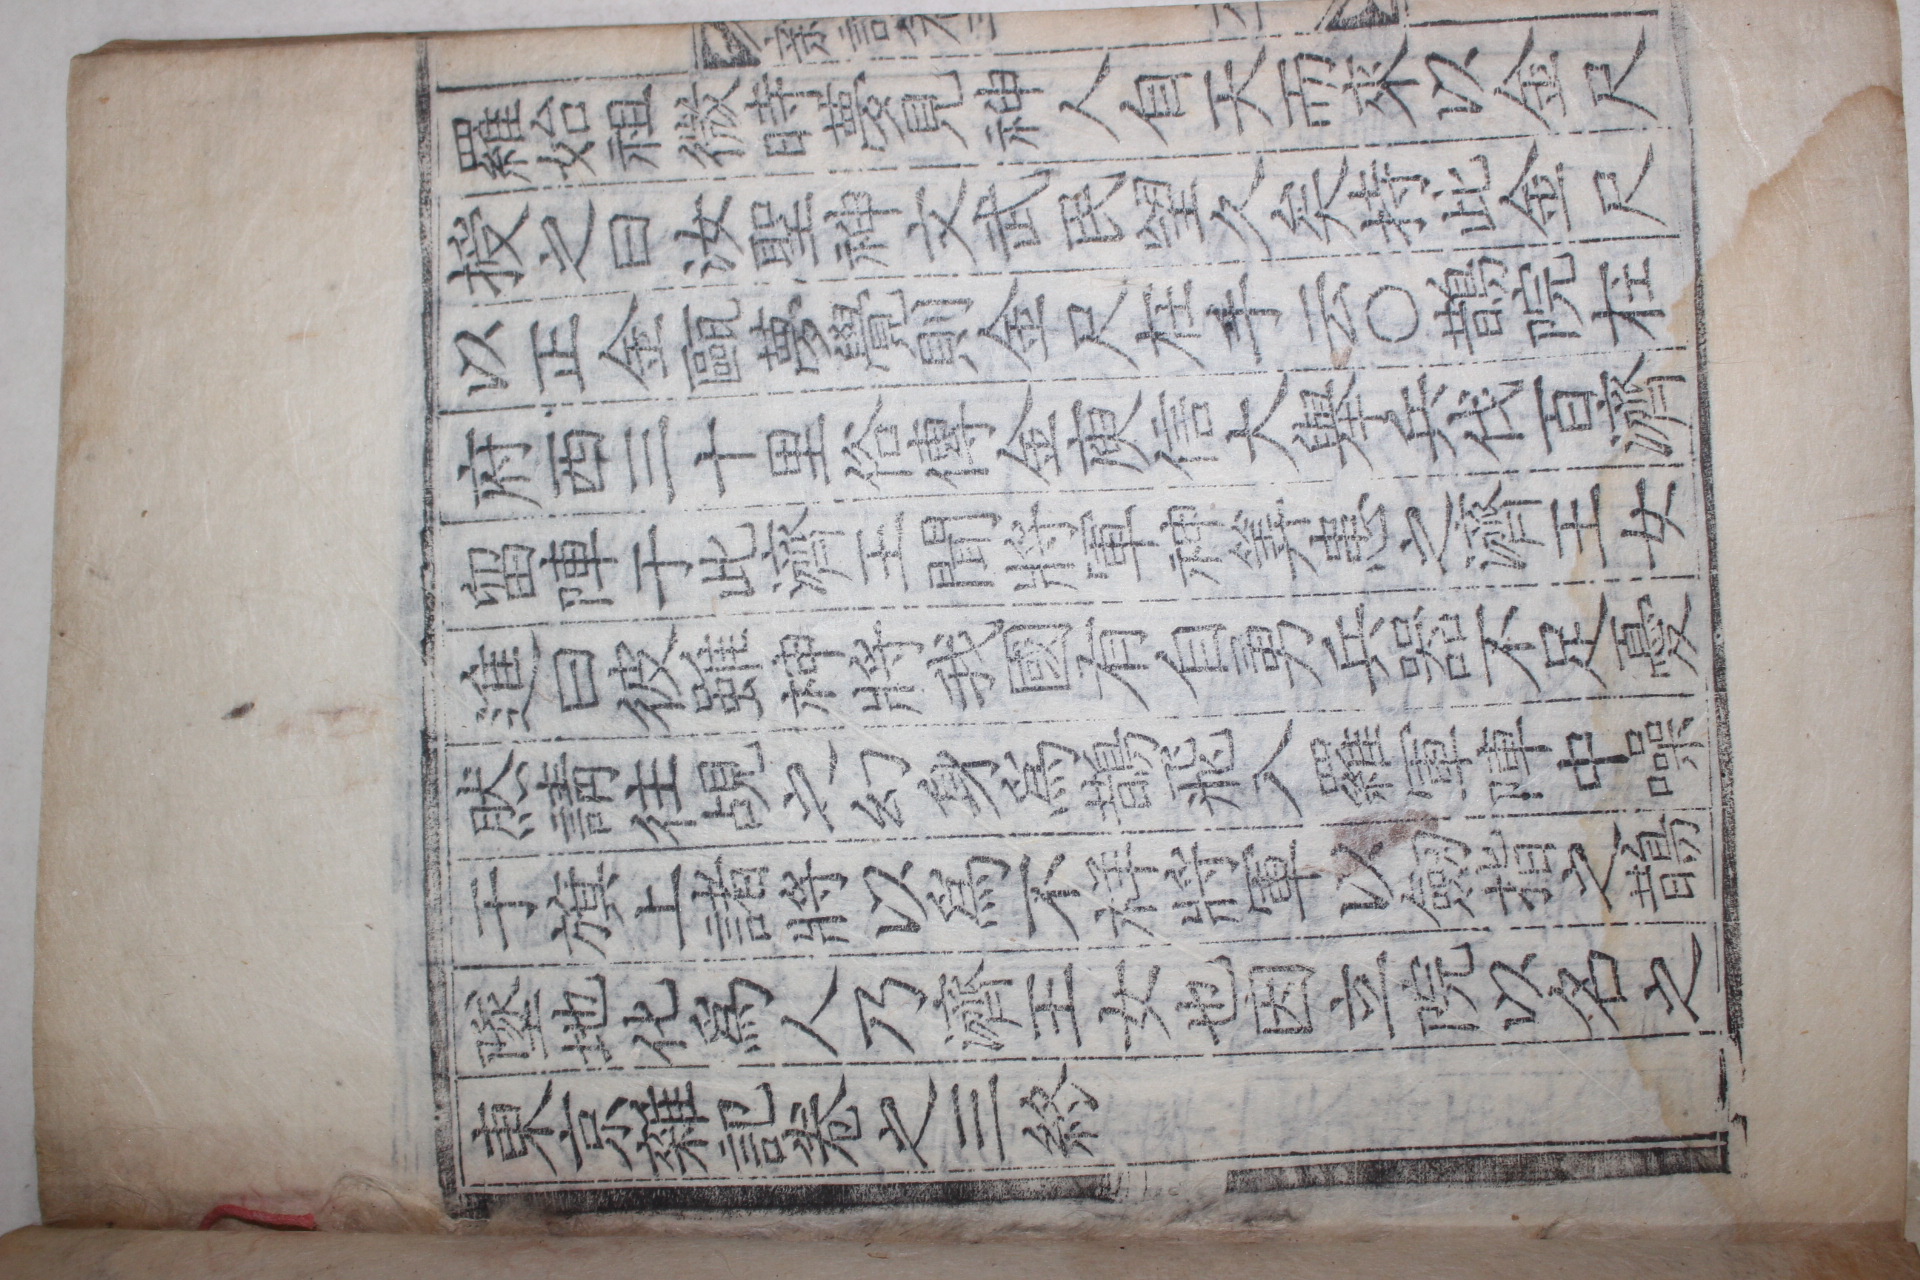 羅始祖微時夢見神人自天而來以金尺
授之曰汝聖神文武民望久矣持此金尺
以正金甌夢覺則金尺在手云○鵲院在
府西三十里俗傳金庾信大擧兵伐百濟
留陣于此濟王聞將軍神筭患之濟王女
進曰彼雖神將我國有自勇兵器不足憂
然請往覘之幻身爲鵲飛入羅軍陣中噪
于旗上諸將以爲不祥將軍以劒指之鵲
墜地化爲人乃濟王女也因立院以名之
東京雜記卷之三終